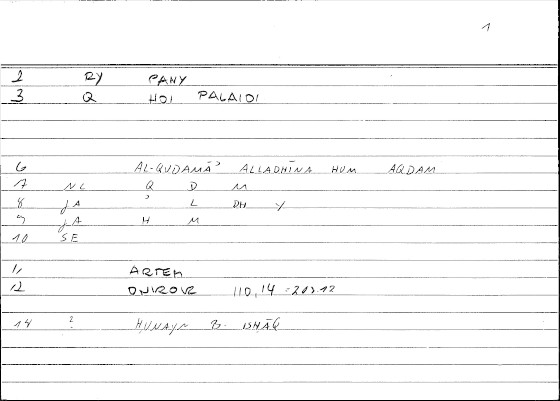 1
2 RY PANY
3 Q HOI PALAIOI
6 AL-QUDAMĀʾ ALLADHĪNA HUM AQDAM
7 NC Q D M
8 JA ʾ L DH Y
9 JA H M
10 SE
11 ARTEM
12 ONIROCR 110,14 = 203.12
14 ? ḤUNAYN B. ISḤĀQ